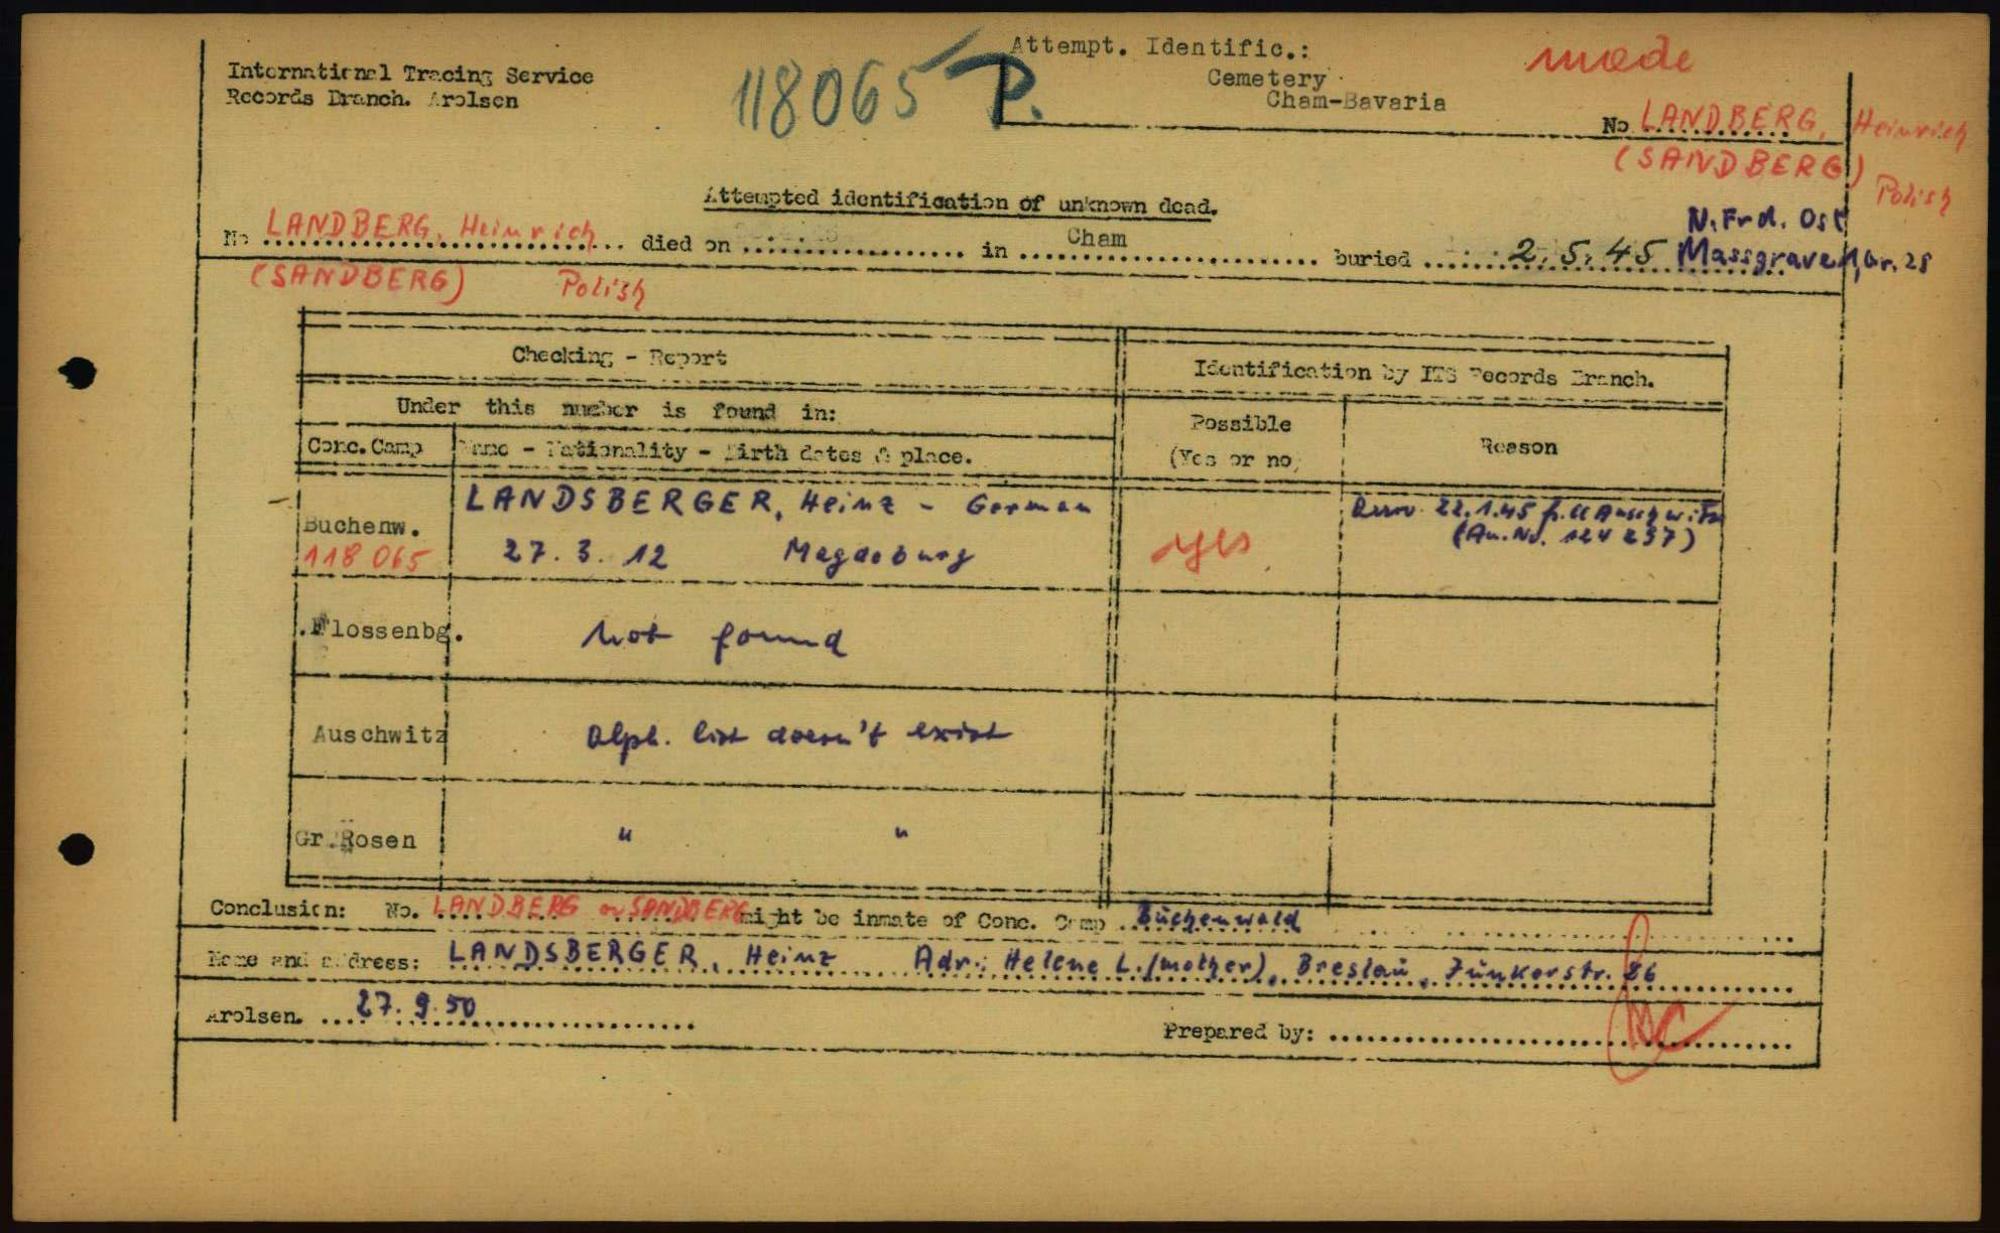 International Tracing Service
Records Branch. Arolsen
118065 P.
Attempt. Identific.:
Cemetery
Cham-Bavaria
made
No LANDBERG, Heinrich
(SANDBERG)
Polish
Attempted identification of unknown dead.
N.Frd. Ost
No LANDBERG, Heinrich died on .......... in Cham buried 2.5.45 Massgrave 1, Gr. 28
(SANDBERG) Polish
Checking - Report
Identification by ITS Records Branch.
Under this number is found in:
Possible
(Yes or no)
Reason
Conc. Camp
Name - Nationality - Birth dates & place.
Buchenw.
118 065
LANDSBERGER, Heinz - German
27. 3. 12 Magdeburg
yes
22.1.45 Auschwitz
(Au. No. 124 237)
.Flossenbg.
not found
Auschwitz
Alph. list doesn't exist
Gr. Rosen
" "
Conclusion: No. LANDBERG or SANDBERG might be inmate of Conc. Camp Buchenwald
Name and address: LANDSBERGER, Heinz Adr.: Helene L. (mother), Breslau, Junkerstr. 26
Arolsen. 27. 9. 50
Prepared by: